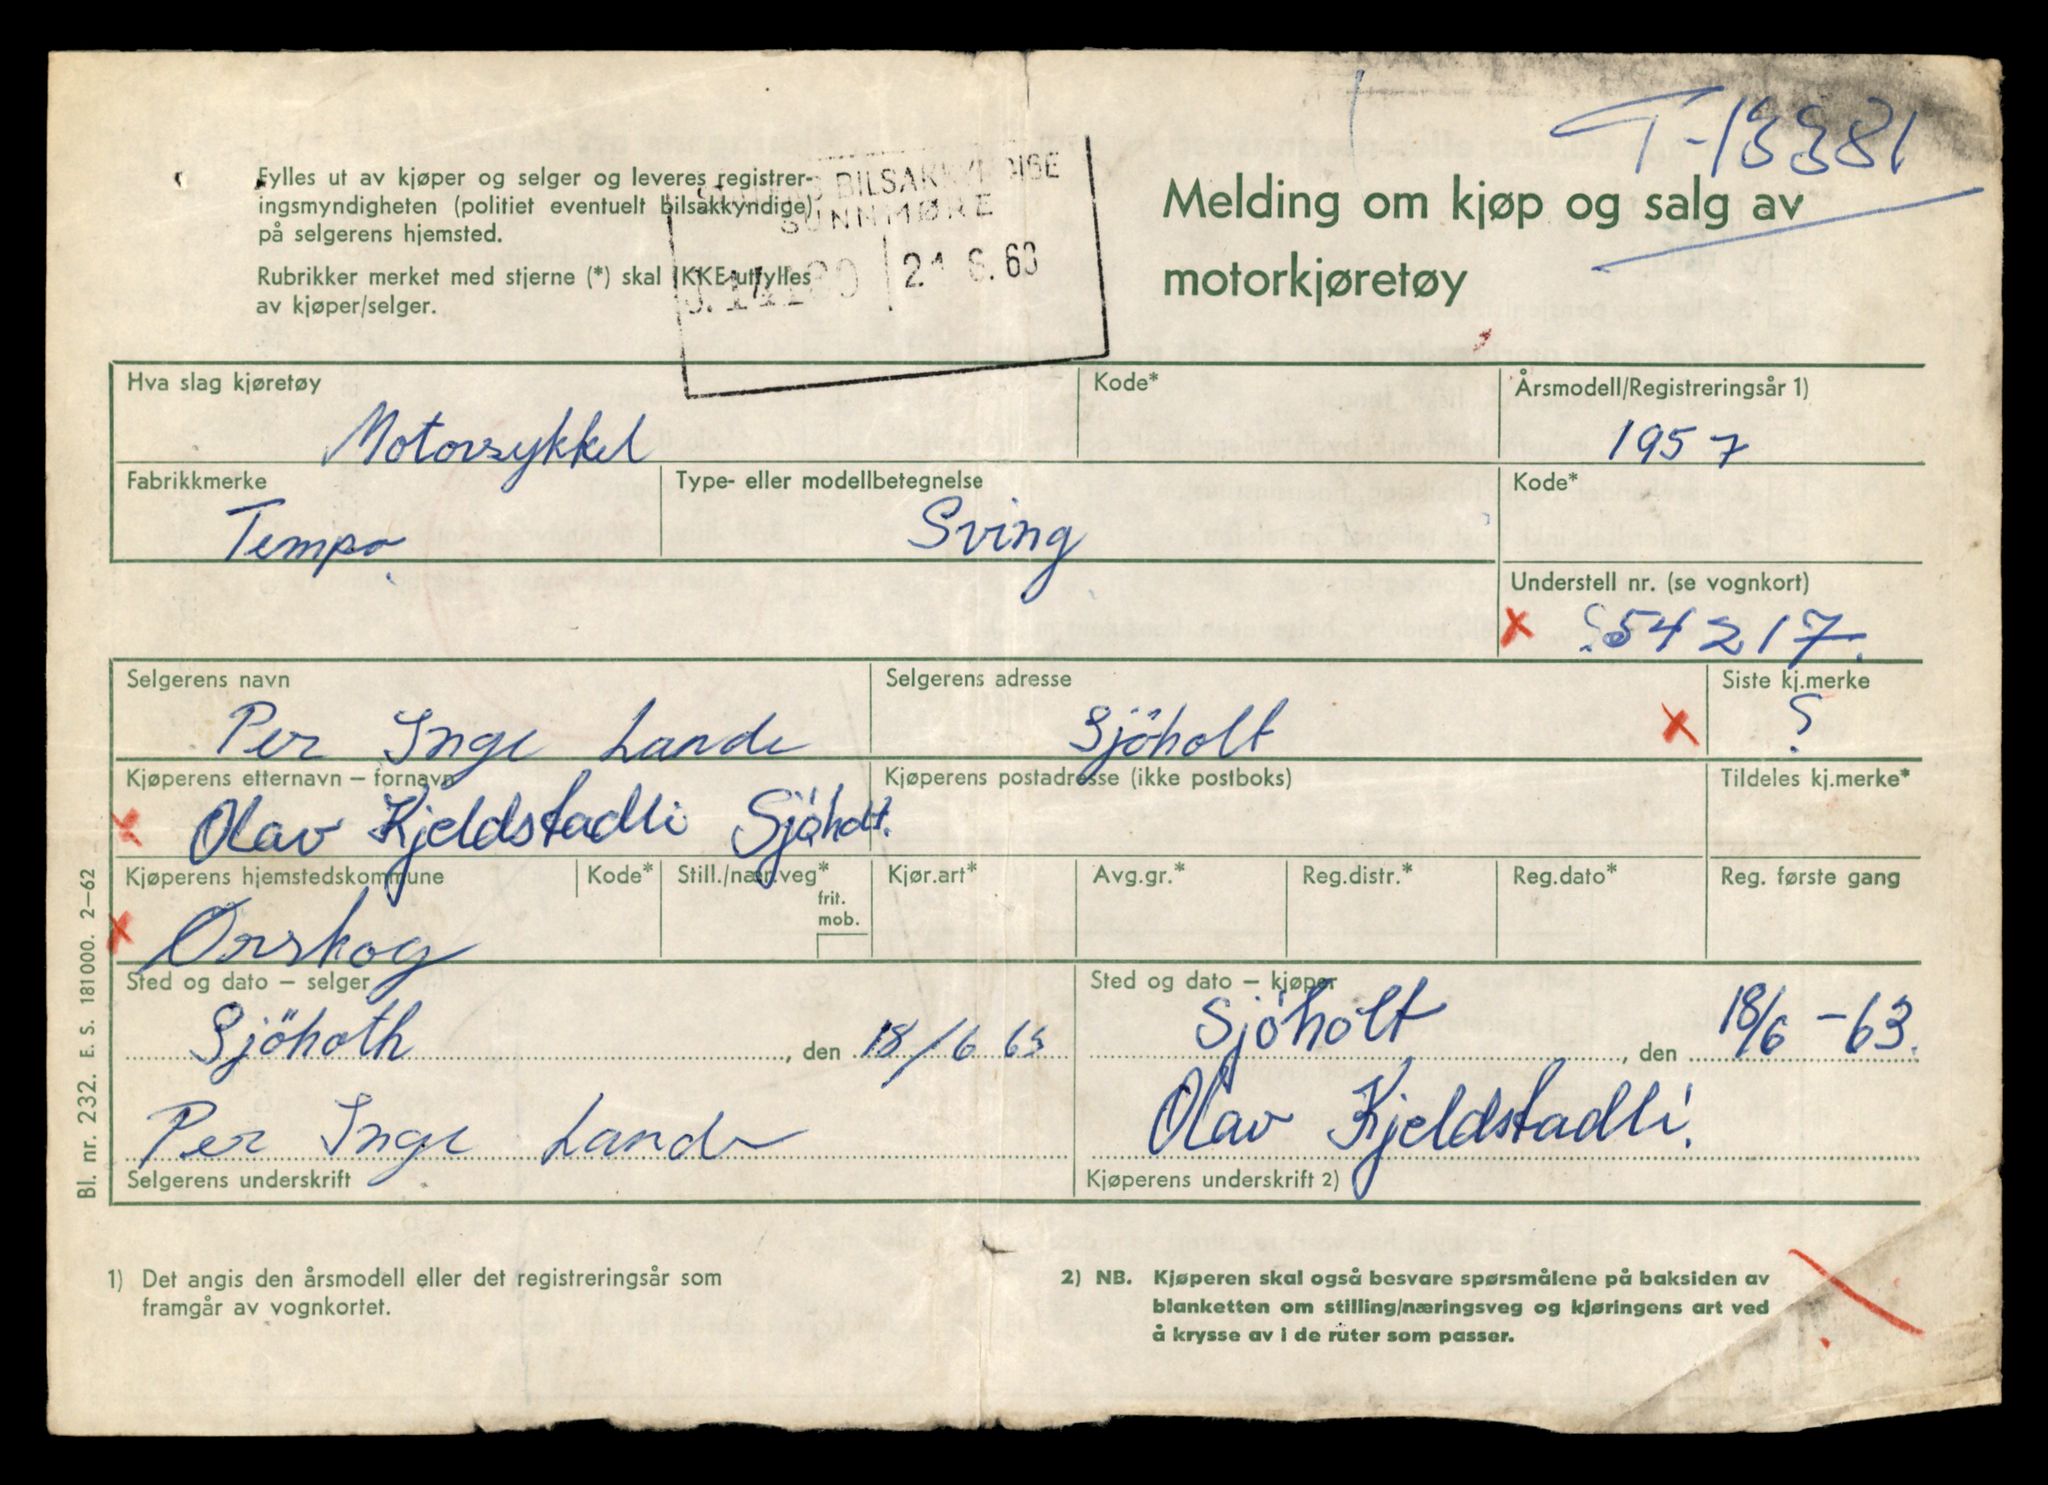 T-13381
Fylles ut av kjøper og selger og leveres registrer-
ingsmyndigheten (politiet eventuelt bilsakkyndige)
på selgerens hjemsted.
Rubrikker merket med stjerne (*) skal IKKE utfylles
av kjøper/selger.
BILSAKKYNDIGE
SUNNMØRE
Melding om kjøp og salg av
motorkjøretøy
Hva slag kjøretøy
Motorsykkel
Kode*
Årsmodell/Registreringsår 1)
1957
Fabrikkmerke
Tempo
Type- eller modellbetegnelse
Sving
Kode*
Understell nr. (se vognkort)
54217.
Selgerens navn
Per Inge Lande
Selgerens adresse
Sjöholt
Siste kj.merke
?
Kjøperens etternavn – fornavn
Olav Kjeldstadli Sjöholt.
Kjøperens postadresse (ikke postboks)
Tildeles kj.merke*
Kjøperens hjemstedskommune
Ørskog
Kode*
Still./nær.veg*
frit.
mob.
Kjør.art*
Avg.gr.*
Reg.distr.*
Reg.dato*
Reg. første gang
Sted og dato – selger
Sjöholth, den 18/6 63
Per Inge Lande
Selgerens underskrift
Sted og dato – kjøper
Sjöholt, den 18/6 – 63.
Olav Kjeldstadli.
Kjøperens underskrift 2)
Bl. nr. 232. E. S. 181000. 2–62
1) Det angis den årsmodell eller det registreringsår som
framgår av vognkortet.
2) NB. Kjøperen skal også besvare spørsmålene på baksiden av
blanketten om stilling/næringsveg og kjøringens art ved
å krysse av i de ruter som passer.